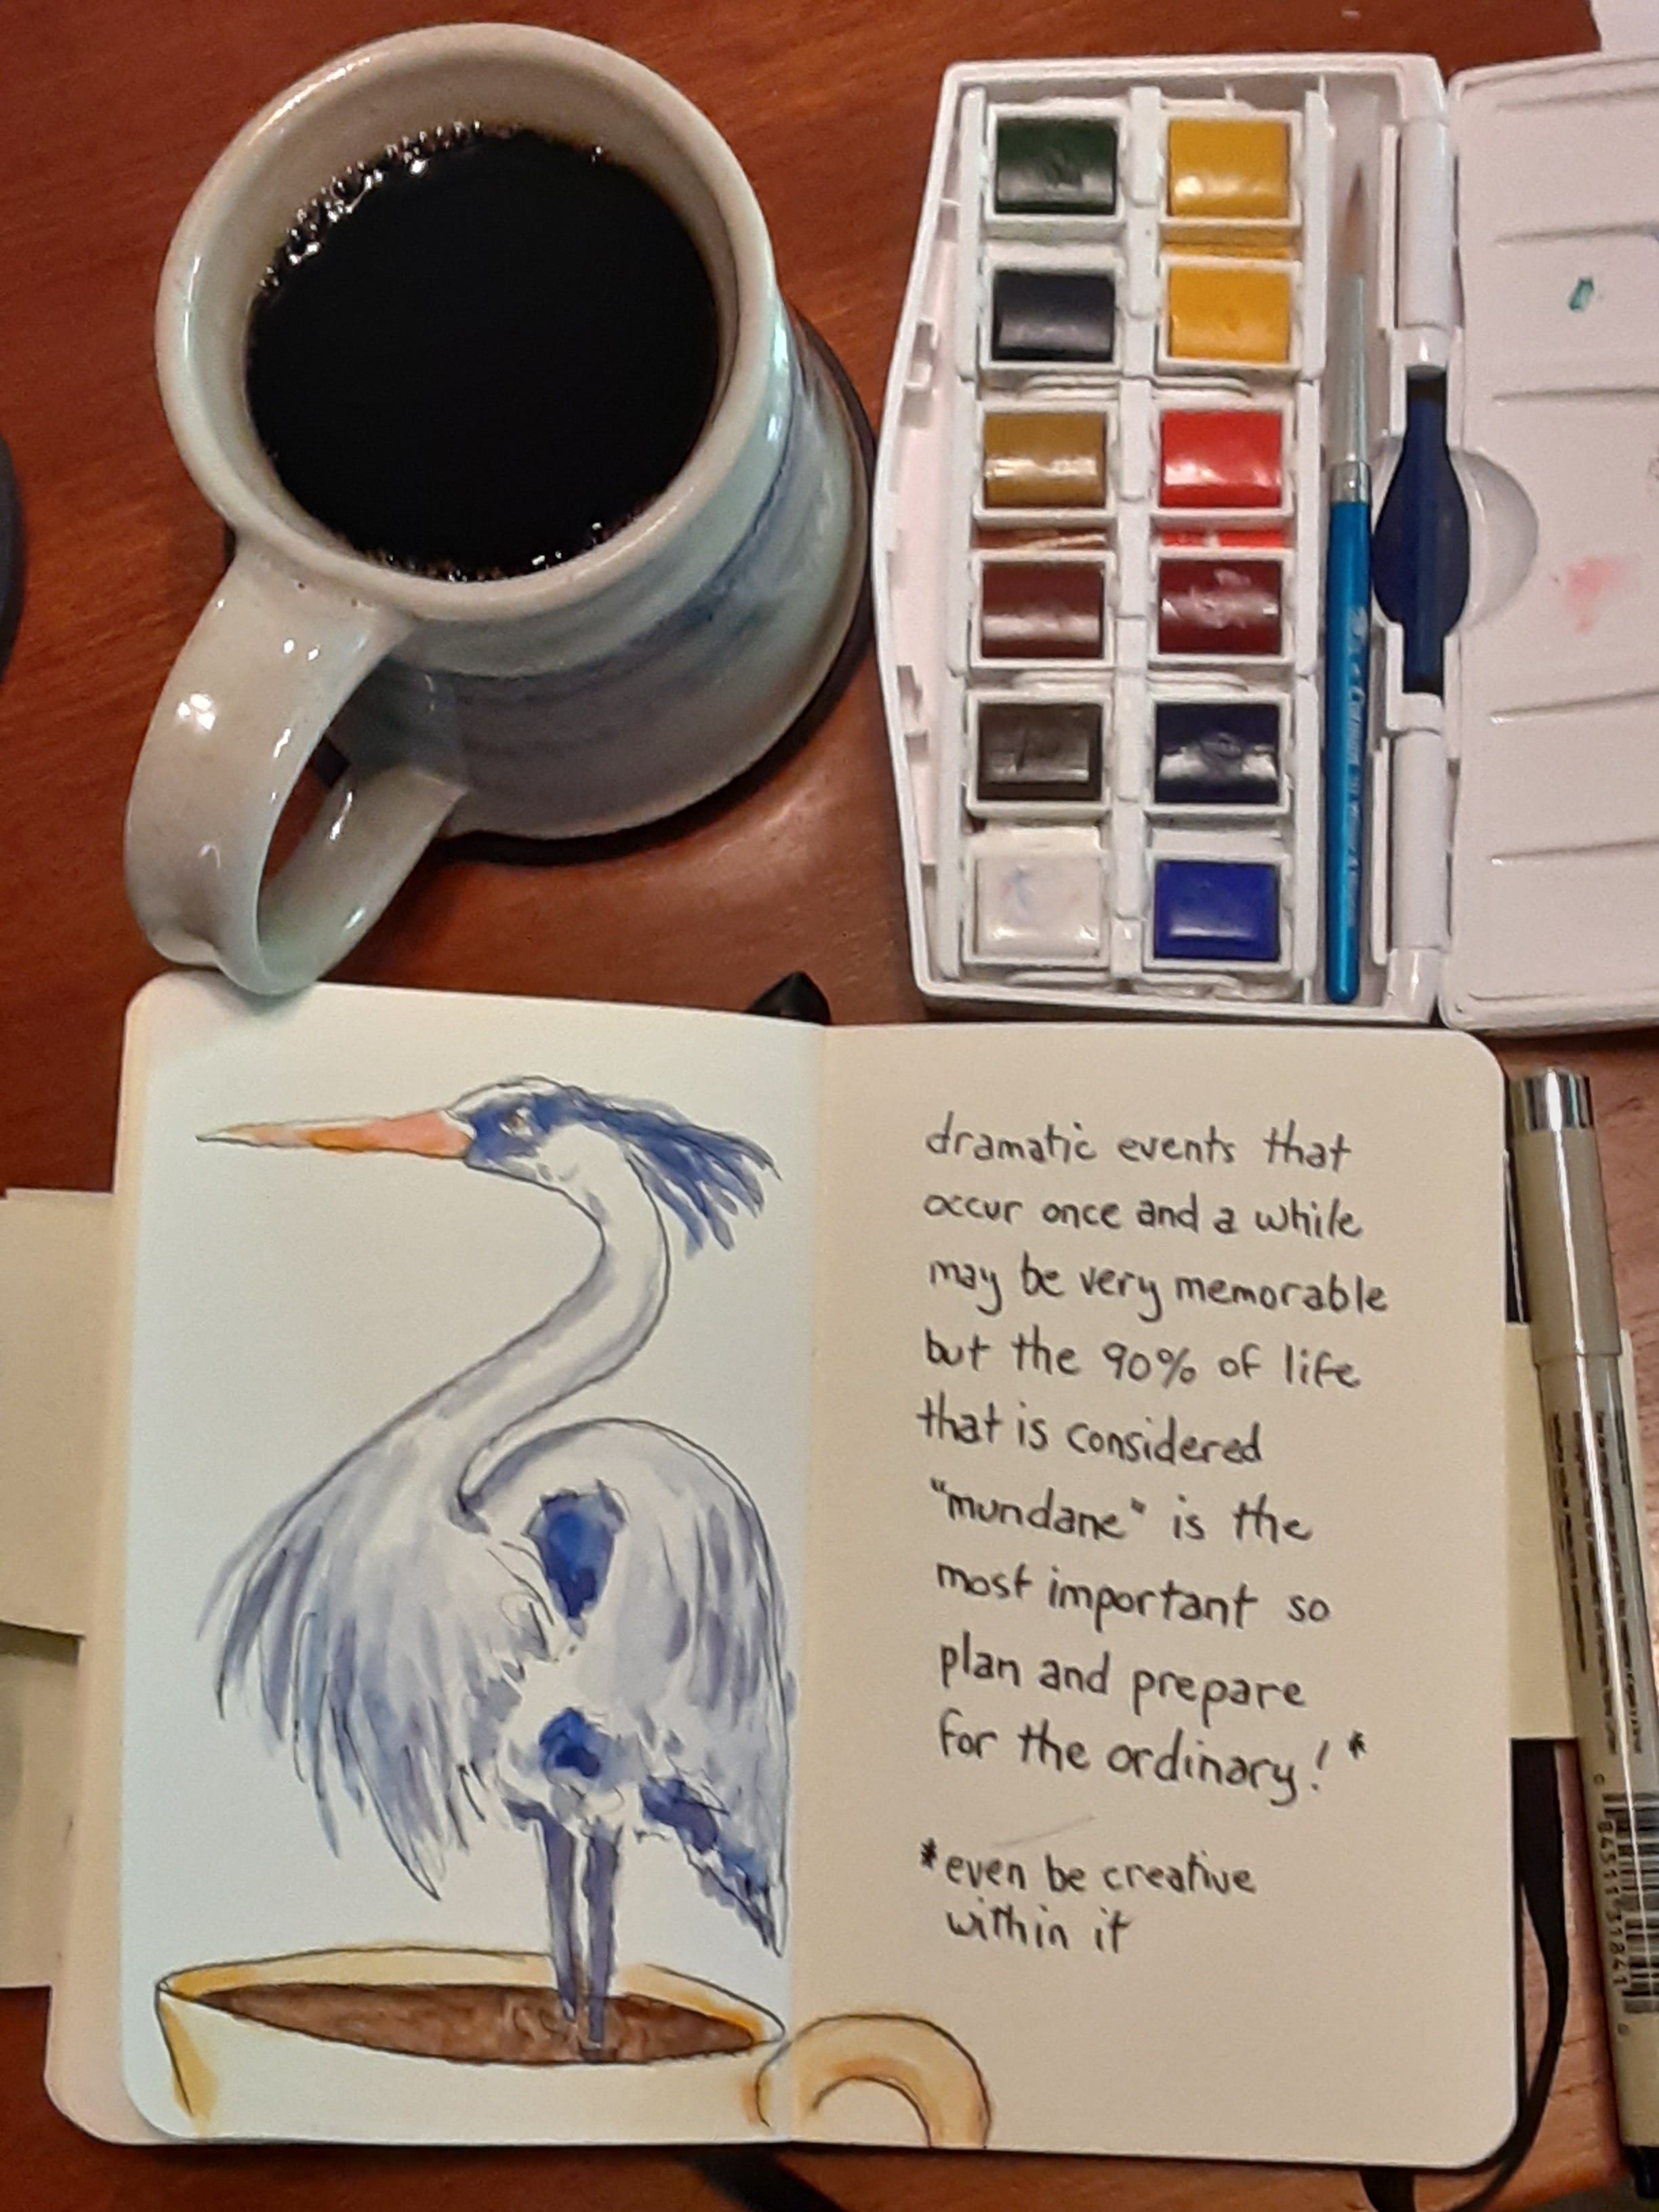 dramatic events that
occur once and a while
may be very memorable
but the 90% of life
that is considered
"mundane" is the
most important so
plan and prepare
for the ordinary! *
*even be creative
within it